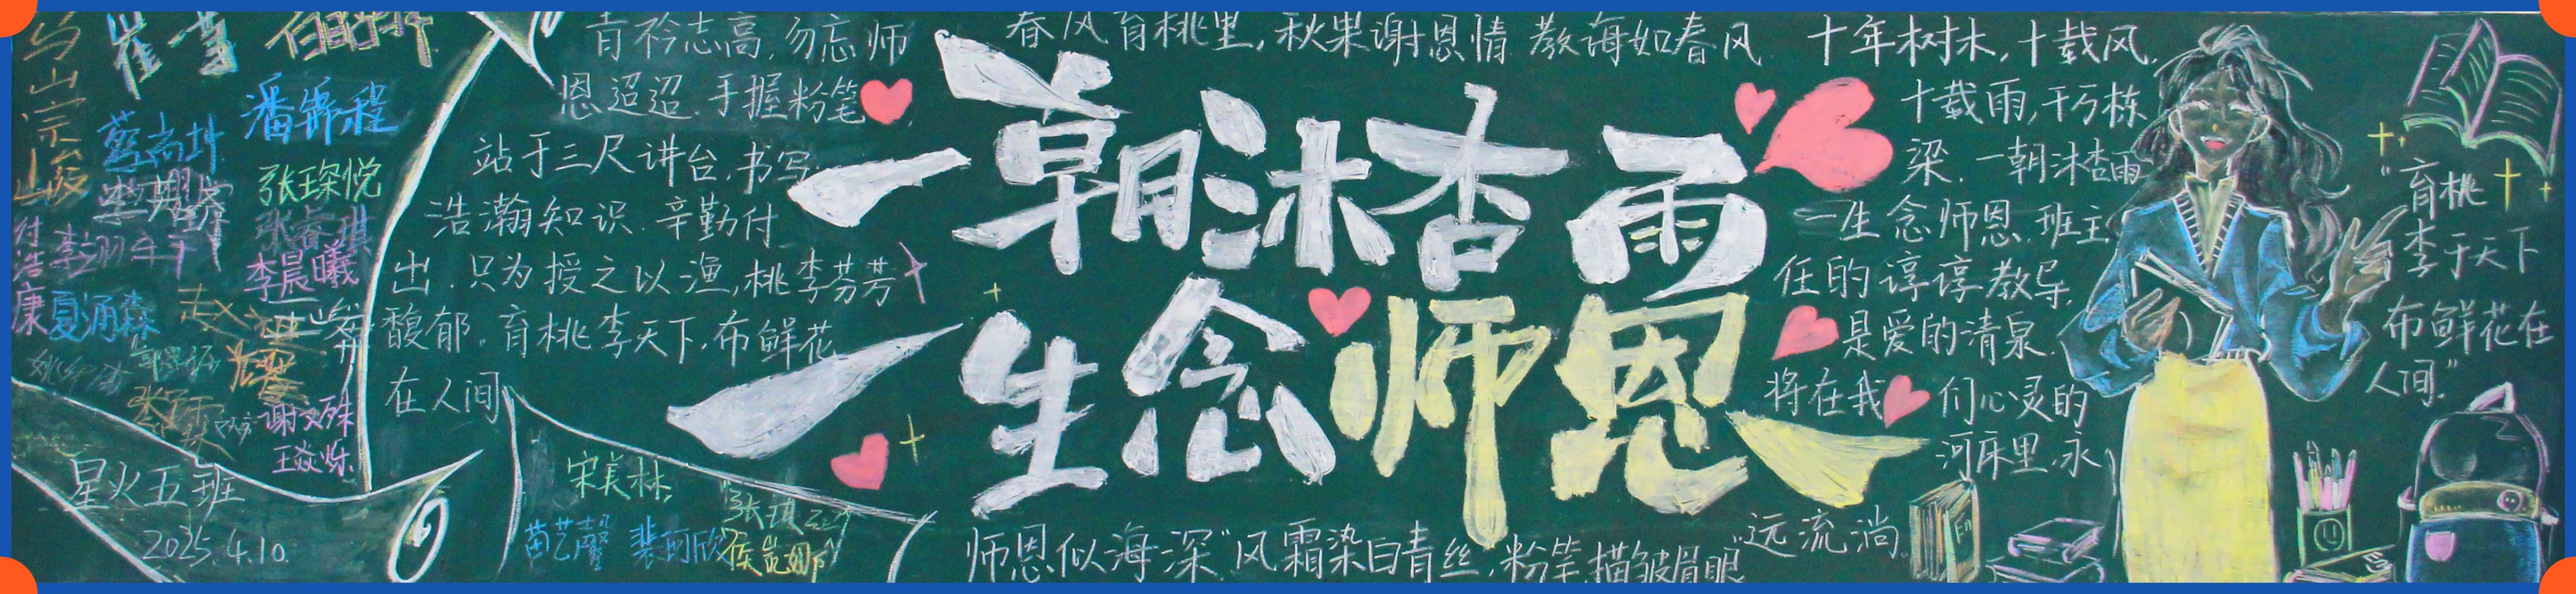 崔一萱
潘锦程
张琛悦
张睿琪
李晨曦
付浩康
夏涌森
谢文殊
王焱烁
星火五班
2025.4.10.
青衿志高,勿忘师
恩迢迢.手握粉笔
站于三尺讲台,书写
浩瀚知识.辛勤付
出.只为授之以渔,桃李芬芳
馥郁.育桃李天下.布鲜花
在人间
宋美林
苗艺馨 裴珂欣
春风育桃里,秋果谢恩情 教诲如春风
一朝沐杏雨
一生念师恩
师恩似海深"风霜染白青丝,粉笔描皱眉眼"
十年树木,十载风,
十载雨,千万栋
梁.一朝沐杏雨
一生念师恩.班主
任的谆谆教导,
是爱的清泉.
将在我们心灵的
河床里,永
远流淌.
"育桃
李于天下
布鲜花在
人间."